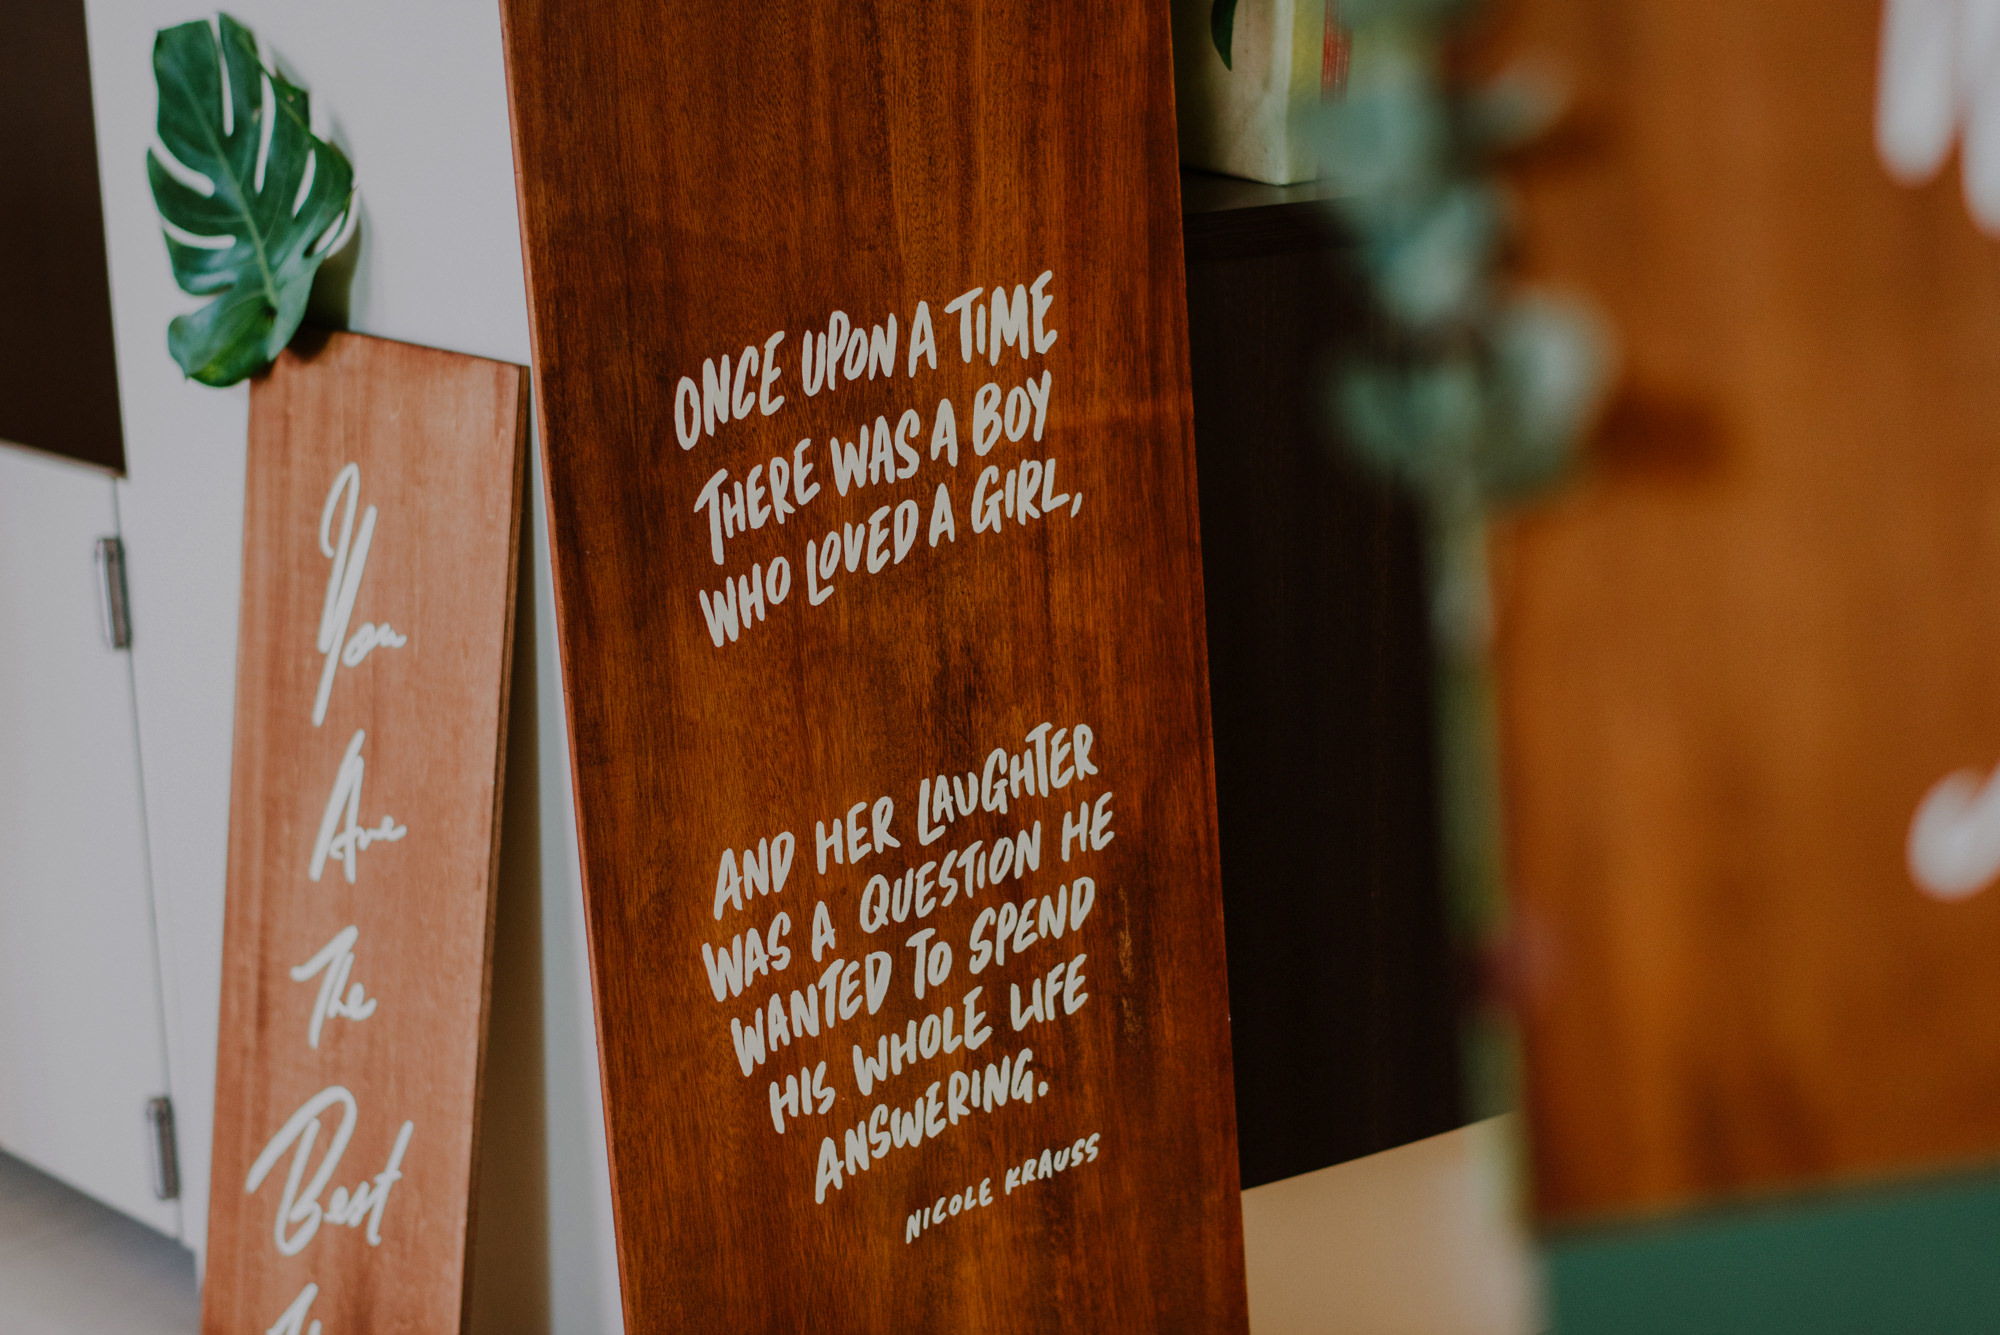 You
Are
The
Best
ONCE UPON A TIME
THERE WAS A BOY
WHO LOVED A GIRL,
AND HER LAUGHTER
WAS A QUESTION HE
WANTED TO SPEND
HIS WHOLE LIFE
ANSWERING.
NICOLE KRAUSS